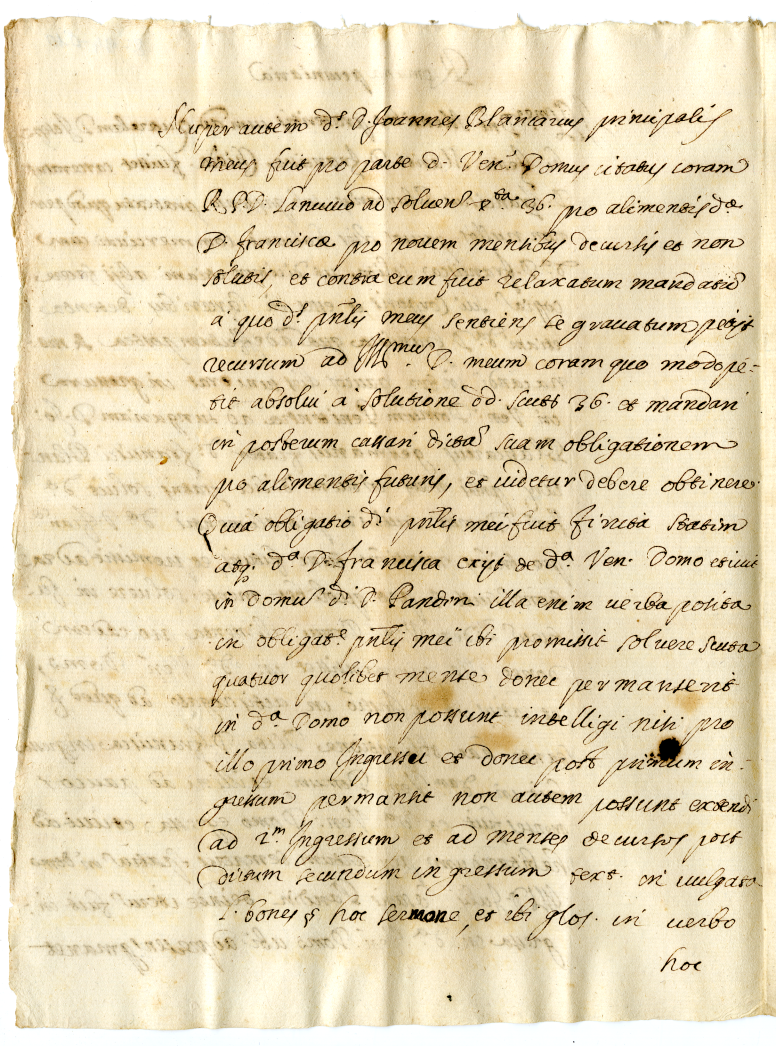 Nuper autem d.s D. Joannes Blancarius principalis
meus fuit pro parte d. Ven. Domus citatus coram
R.P.D. Lanuuio ad soluen. 36. pro alimentis d.æ
D. Franciscæ pro nouem mensibus decursis et non
solutis, et contra eum fuit relaxatum mandatũ
a quo d.s pñlis meus sentiens se grauatum petijt
recursum ad Illmum D. meum coram quo modo pe-
tit absolui a solutione dd. scut. 36. et mandari
in posterum cassari dictã suam obligationem
pro alimentis futuris, et uidetur debere obtinere.
Quia obligatio d.i pñlis mei fuit finita statim
atq. d.a D. Francisca exijt de d.a Ven. Domo et iuit
in domũ d.i D. Pandini illa enim uerba posita
in obligat.e pñlis mei ibi promissit soluere scuta
quatuor quolibet mense donec permanserit
in d.a Domo non possunt intelligi nisi pro
illo primo Ingressu et donec post primum in-
gressum permansit non autem possunt extendi
ad 2.m Ingressum et ad menses decursos post
dictum secundum ingressum text. in uulgata
l. bones § hoc sermone, et ibi glos. in uerbo
hoc